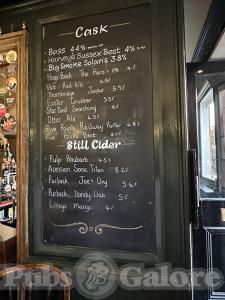 Cask
Bass 4.4%
Harvey's Sussex Best 4%
Big Smoke Solaris 3.8%
Hogs Back The Hero's
Vale Red Kite 4.3%
Thornbridge Jaipur 5.9%
Exeter 3.9%
Star Bud Searching 6%
Otter Ale 4.5%
Five Points Railway Porter 4.8%
Five Points Best 4.1%
Still Cider
Pulp Rhubarb 4.5%
Ascension Sonic Titan 8.2%
Purbeck Joe's Dry 5.6%
Purbeck Dandy Dab 5%
Lilley's Mango 4%
Pubs Galore